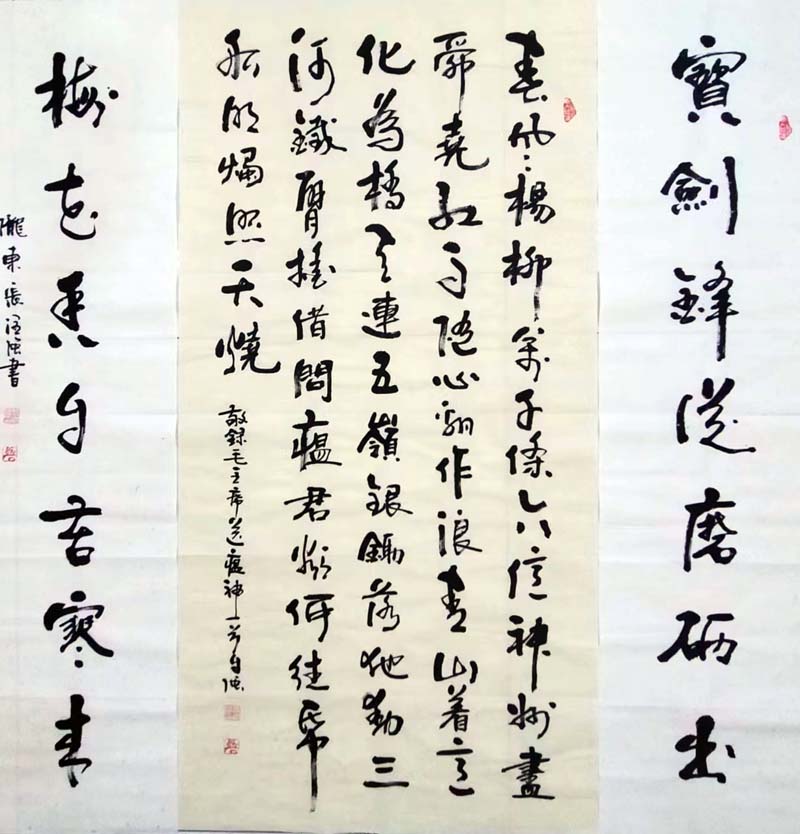 寶劍鋒從磨礪出
春风楊柳萬千條六億神州盡
舜堯红雨随心翻作浪青山着意
化為橋天連五嶺銀鋤落地動三
河鐵臂摇借問瘟君欲何往紙
船明燭照天燒
敬録毛主席送瘟神一首
梅花香自苦寒来
隴東張強書